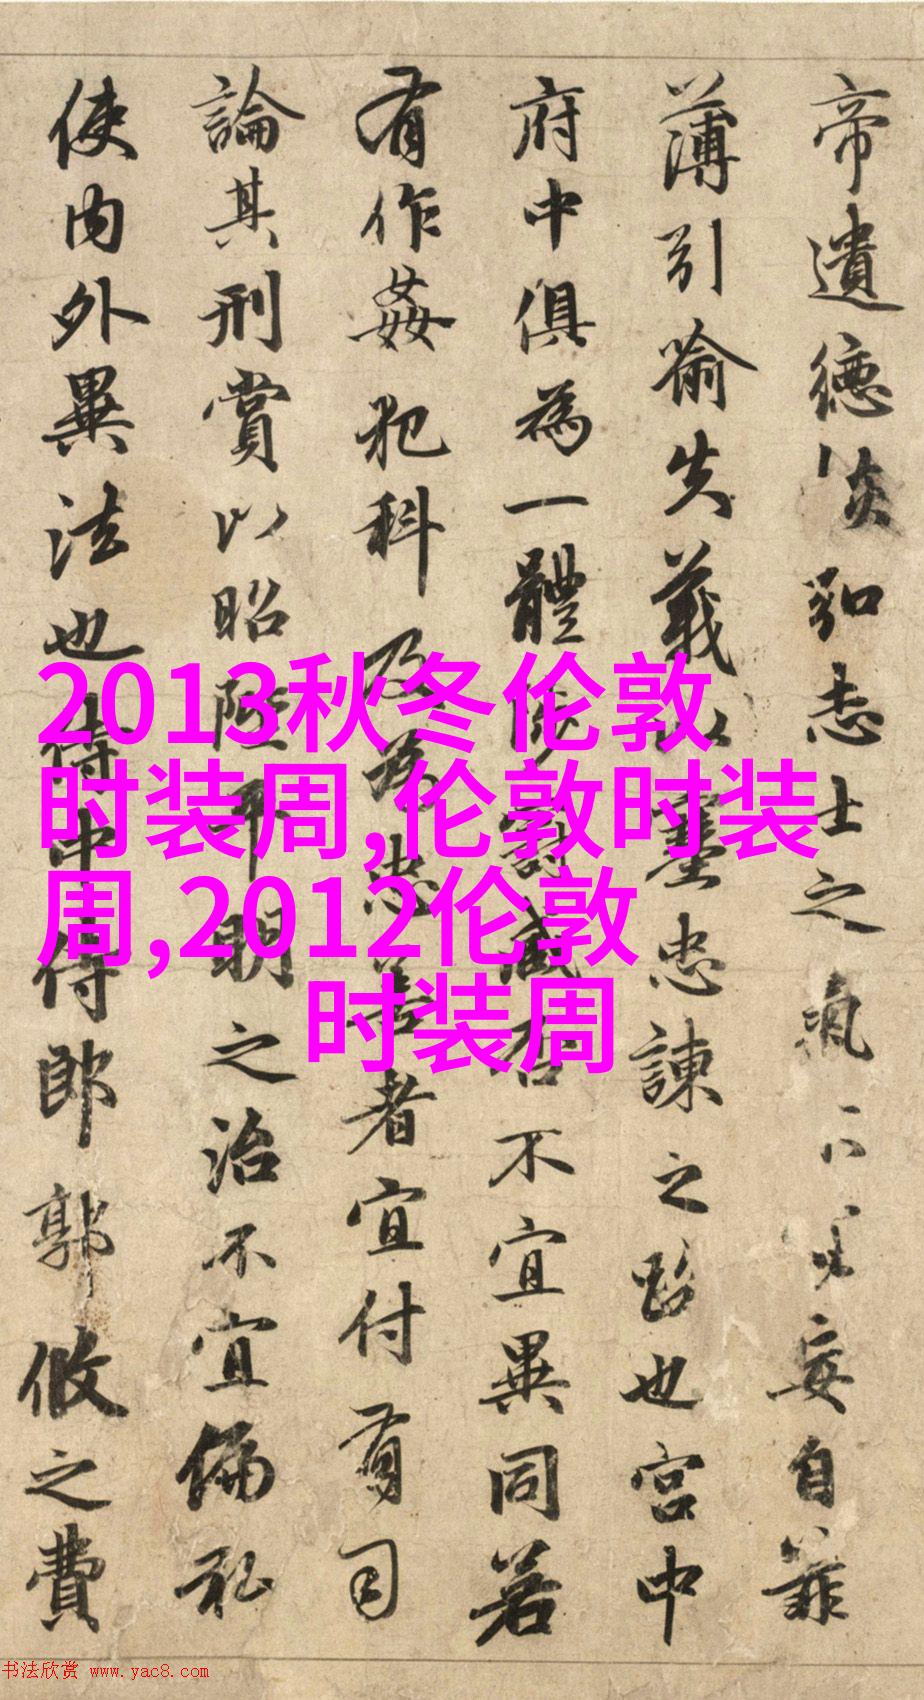 帝遺德恢弘志士之氣不妄自菲
薄引喻失義以塞忠諫之路也宮中
府中俱為一體陟罰臧否不宜異同若
有作姦犯科及為忠善者宜付有司
論其刑賞以昭陛平明之治不宜偏私
使內外異法也侍中侍郎郭攸之費
2013秋冬伦敦
时装周,伦敦时装
周,2012伦敦
时装周
书法欣赏 www.yac8.com